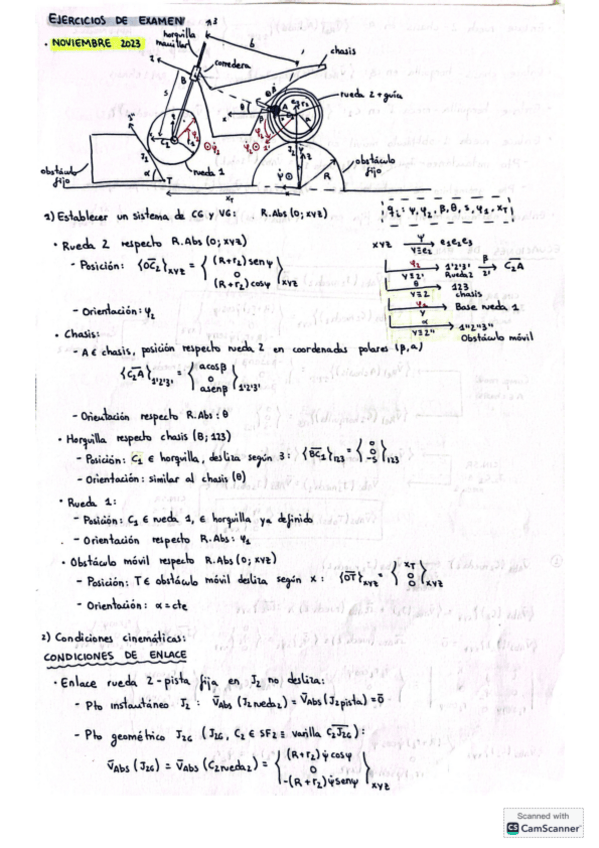 EJERCICIOS DE EXAMEN
• NOVIEMBRE 2023
horquilla
corredera
chasis
rueda 2 + guía
rueda 1
obstáculo
fijo
obstáculo
fijo
1) Establecer un sistema de CG y VG: R.Abs (O; XYZ)
q_i: ψ, φ₂, β, θ, s, φ₁, x_T
• Rueda 2 respecto R.Abs (O; XYZ)
- Posición: {OC₂}XYZ = {(R+r₂) senψ
0
(R+r₂) cosψ}XYZ
XYZ ψ e₁e₂e₃
Y≡e₂
φ₂ 1'2'3' β C₂A
Y≡2' Rueda 2 2'
θ 123
Y≡2 chasis
φ₁ Base rueda 1
Y
α 1"2"3"
Y≡2" Obstáculo móvil
- Orientación: φ₂
• Chasis:
- A ∈ chasis, posición respecto rueda 2 en coordenadas polares (β, a)
{C₂A}1'2'3' = {a cosβ
0
a senβ}1'2'3'
- Orientación respecto R.Abs: θ
• Horquilla respecto chasis (B; 123)
- Posición: C₁ ∈ horquilla, desliza según 3: {BC₁}123 = {0
0
-s}123
- Orientación: similar al chasis (θ)
• Rueda 1:
- Posición: C₁ ∈ rueda 1, ∈ horquilla ya definido
- Orientación respecto R.Abs: φ₁
• Obstáculo móvil respecto R.Abs (O; XYZ)
- Posición: T ∈ obstáculo móvil desliza según x: {OT}XYZ = {x_T
0
0}XYZ
- Orientación: α = cte
2) Condiciones cinemáticas:
CONDICIONES DE ENLACE
• Enlace rueda 2 - pista fija en J₂ no desliza:
- Pto instantáneo J₂: v̄Abs (J₂rueda2) = v̄Abs (J₂pista) = 0̄
- Pto geométrico J₂G (J₂G, C₂ ∈ SF2 ≡ varilla C₂J₂G):
v̄Abs (J₂G) = v̄Abs (C₂rueda2) = {(R+r₂) ψ̇ cosψ
0
-(R+r₂) ψ̇ senψ}XYZ
Scanned with
CS CamScanner